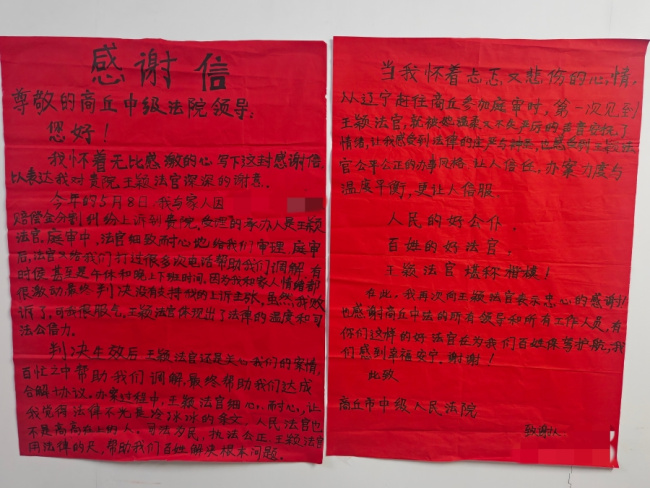 感谢信
尊敬的商丘中级法院领导：
您好！
我怀着无比感激的心写下这封感谢信
以表达我对贵院王颖法官深深的谢意。
今年的5月8日,我与家人因
赔偿金分割纠纷上诉到贵院,受理的承办人是王颖
法官,庭审中,法官细致耐心地给我们审理,庭审
后,法官又给我们打过很多次电话帮助我们调解,有
时候甚至是午休和晚上下班时间,因为我和家人情绪都
很激动最终判决没有支持我的上诉主张,虽然我败
诉了,可我很服气,王颖法官体现出了法律的温度和司
法公信力。
判决生效后王颖法官还是关心我们的案情,
百忙之中帮助我们调解最终帮助我们达成
合解协议。办案过程中,王颖法官细心、耐心,让
我觉得法律不光是冷冰冰的条文,人民法官也
不是高高在上的人,司法为民,执法公正,王颖法官
用法律的尺,帮助我们百姓解决根本问题。
当我怀着忐忑又悲伤的心情,
从辽宁前往商丘参加庭审时,第一次见到
王颖法官,就被她温柔又不失严厉的声音安抚了
情绪,让我感受到法律的庄严与
官公平公正的办事风格,让人信任,办案力度与
温度平衡,更让人信服。
人民的好公仆,
百姓的好法官,
王颖法官堪称楷模！
在此,我再次向王颖法官表示忠心的感谢!
也感谢商丘中法的所有领导和所有工作人员,有
你们这样的好法官在为我们百姓保驾护航,我
们感到幸福安宁。谢谢！
此致
商丘市中级人民法院
致谢人